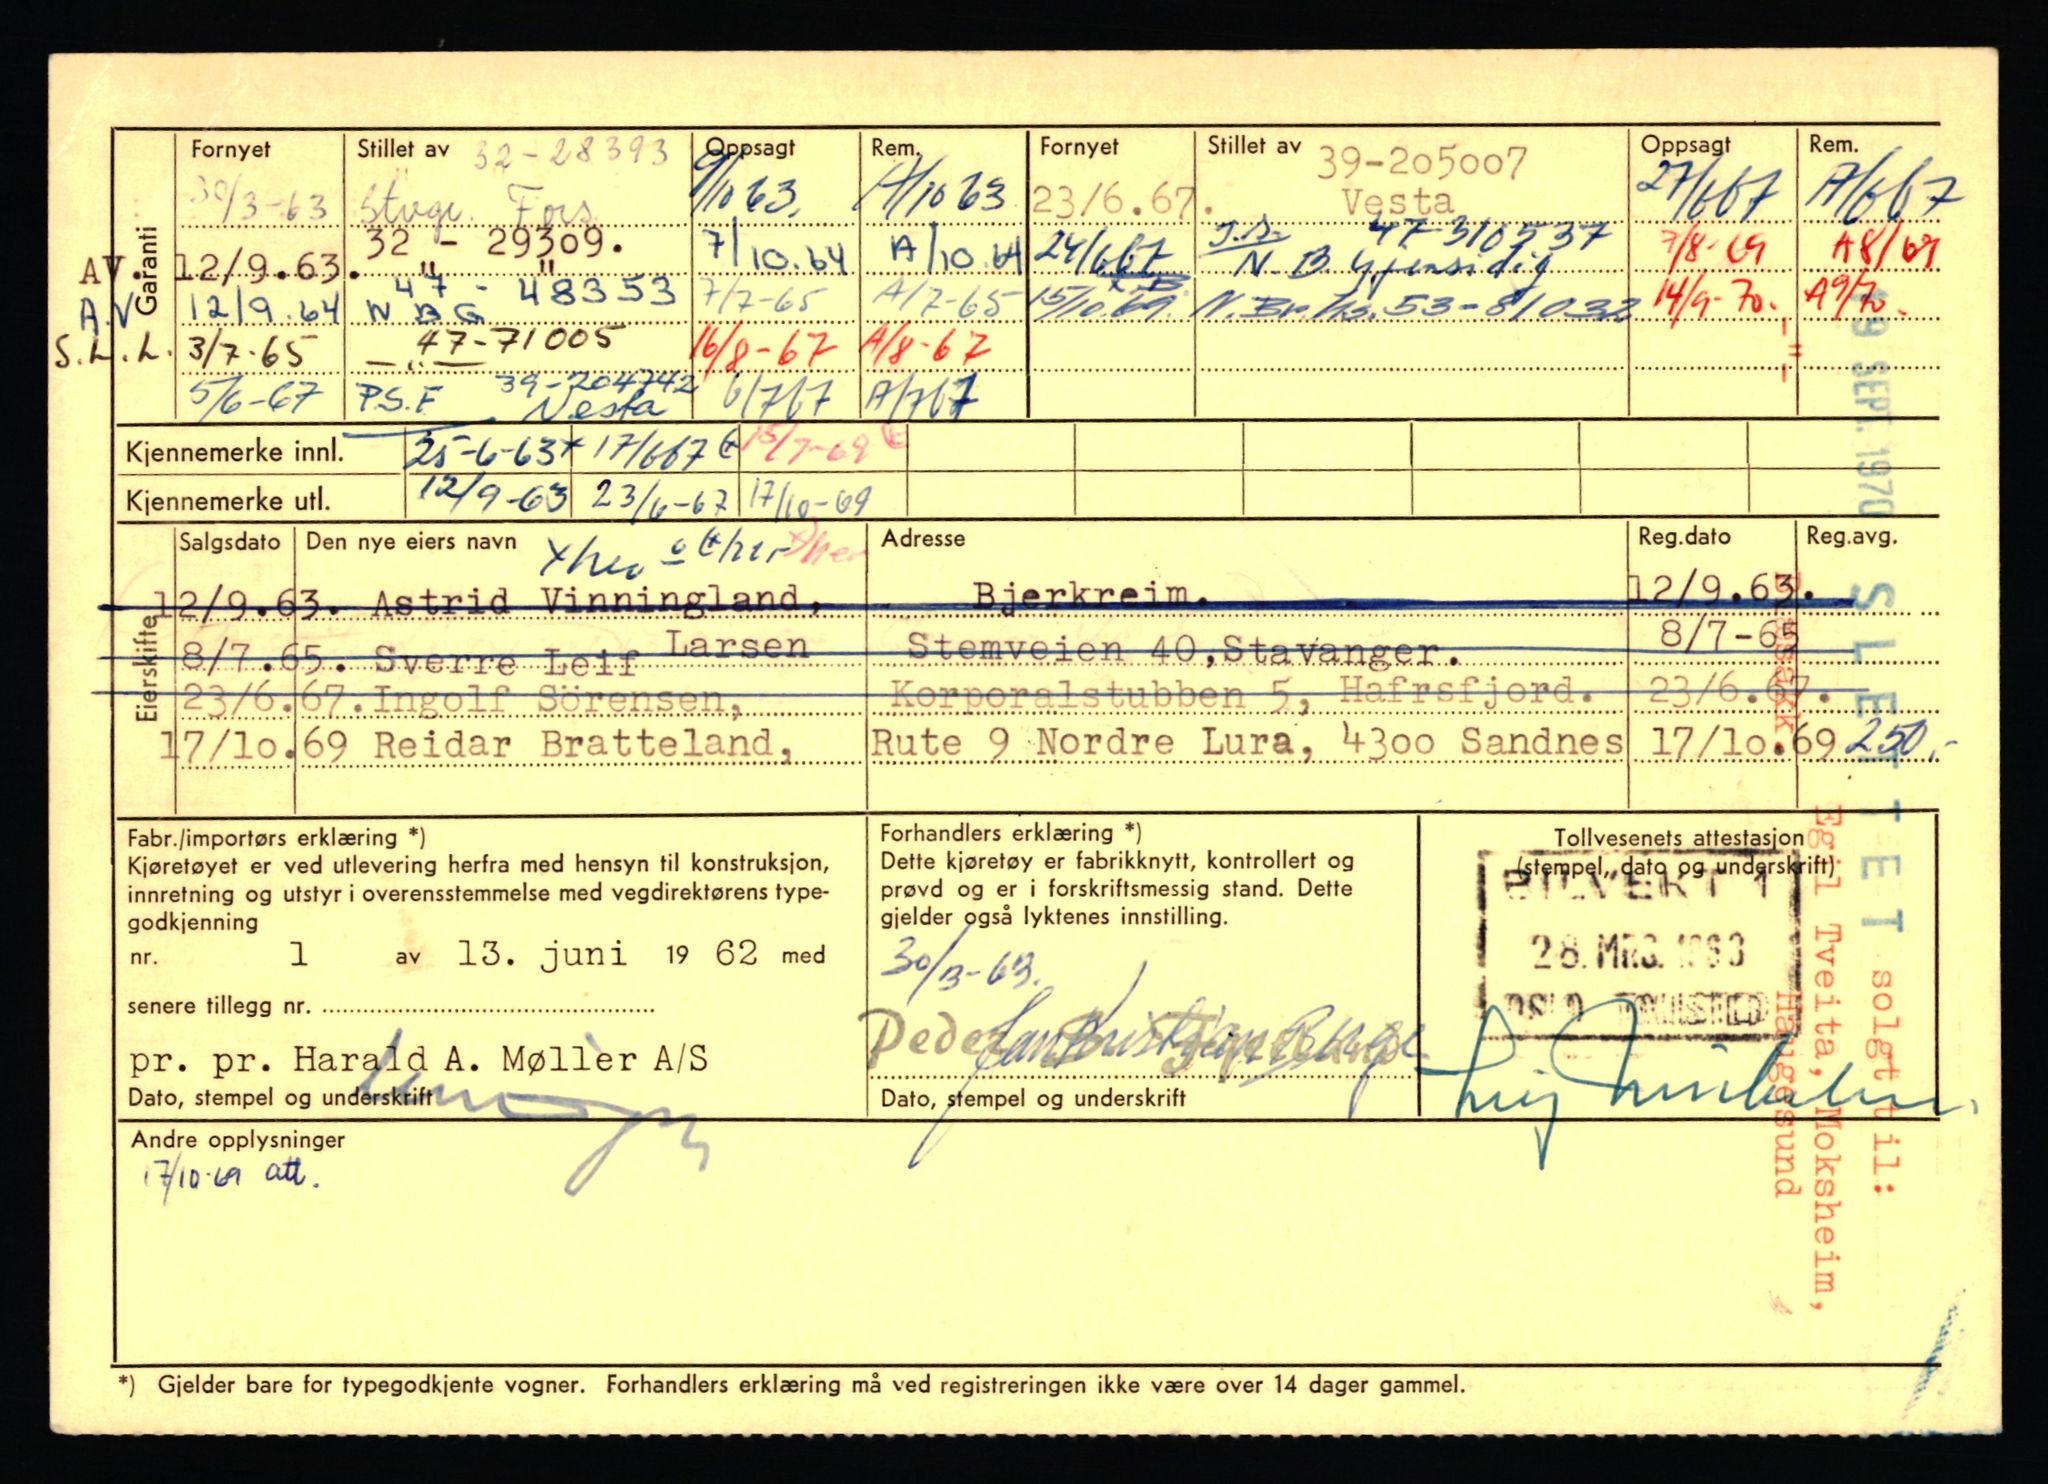 Garanti
Fornyet Stillet av 32-28393 Oppsagt Rem. Fornyet Stillet av 39-205007 Oppsagt Rem.
30/3-63 Stvgr. Fors 9/10 63. A/10 63 23/6.67. Vesta 27/667 A/667
AV. 12/9.63. 32 - 29309. 7/10.64 A/10.64 24/667 47-310537 7/8-69 A8/69
N.B. Gjensidig
A.V 12/9.64 47 - 48353 7/7-65 A/7-65 15/10.69. N.Br.ks. 53-81032 14/9-70. A9/70.
N B G
S.L.L. 3/7-65 47-71005 16/8-67 A/8-67
5/6-67 P.S.F 39-204742 6/767 A/767
Vesta
Kjennemerke innl. 25-6-63x 17/667 15/7-69
Kjennemerke utl. 12/9-63 23/6-67 17/10-69
Eierskifte
Salgsdato Den nye eiers navn Adresse Reg.dato Reg.avg.
12/9.63. Astrid Vinningland, Bjerkreim. 12/9.63.
8/7.65. Sverre Leif Larsen Stemveien 40,Stavanger. 8/7-65
23/6.67. Ingolf Sörensen, Korporalstubben 5, Hafrsfjord. 23/6.67.
17/10.69 Reidar Bratteland, Rute 9 Nordre Lura, 4300 Sandnes 17/10.69 250,-
Fabr./importørs erklæring *)
Kjøretøyet er ved utlevering herfra med hensyn til konstruksjon,
innretning og utstyr i overensstemmelse med vegdirektørens type-
godkjenning
nr. 1 av 13. juni 1962 med
senere tillegg nr.
pr. pr. Harald A. Møller A/S
Dato, stempel og underskrift
Forhandlers erklæring *)
Dette kjøretøy er fabrikknytt, kontrollert og
prøvd og er i forskriftsmessig stand. Dette
gjelder også lyktenes innstilling.
30/3-63.
Peder
Dato, stempel og underskrift
Tollvesenets attestasjon
(stempel, dato og underskrift)
BILVERK 1
28. MRS. 1963
OSLO TOLLSTED
Andre opplysninger
17/10-69 att.
19 SEPT. 1970
SLETTET solgt til:
Egil Tveita, Moksheim,
Haugesund
*) Gjelder bare for typegodkjente vogner. Forhandlers erklæring må ved registreringen ikke være over 14 dager gammel.